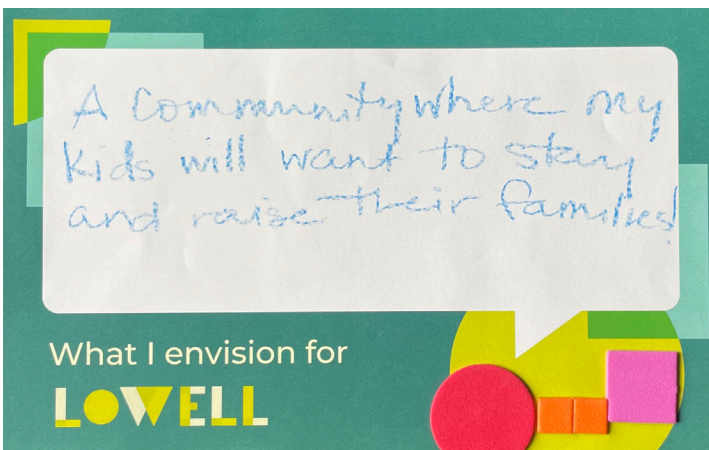 A Community where my
kids will want to stay
and raise their families!
What I envision for
LOWELL